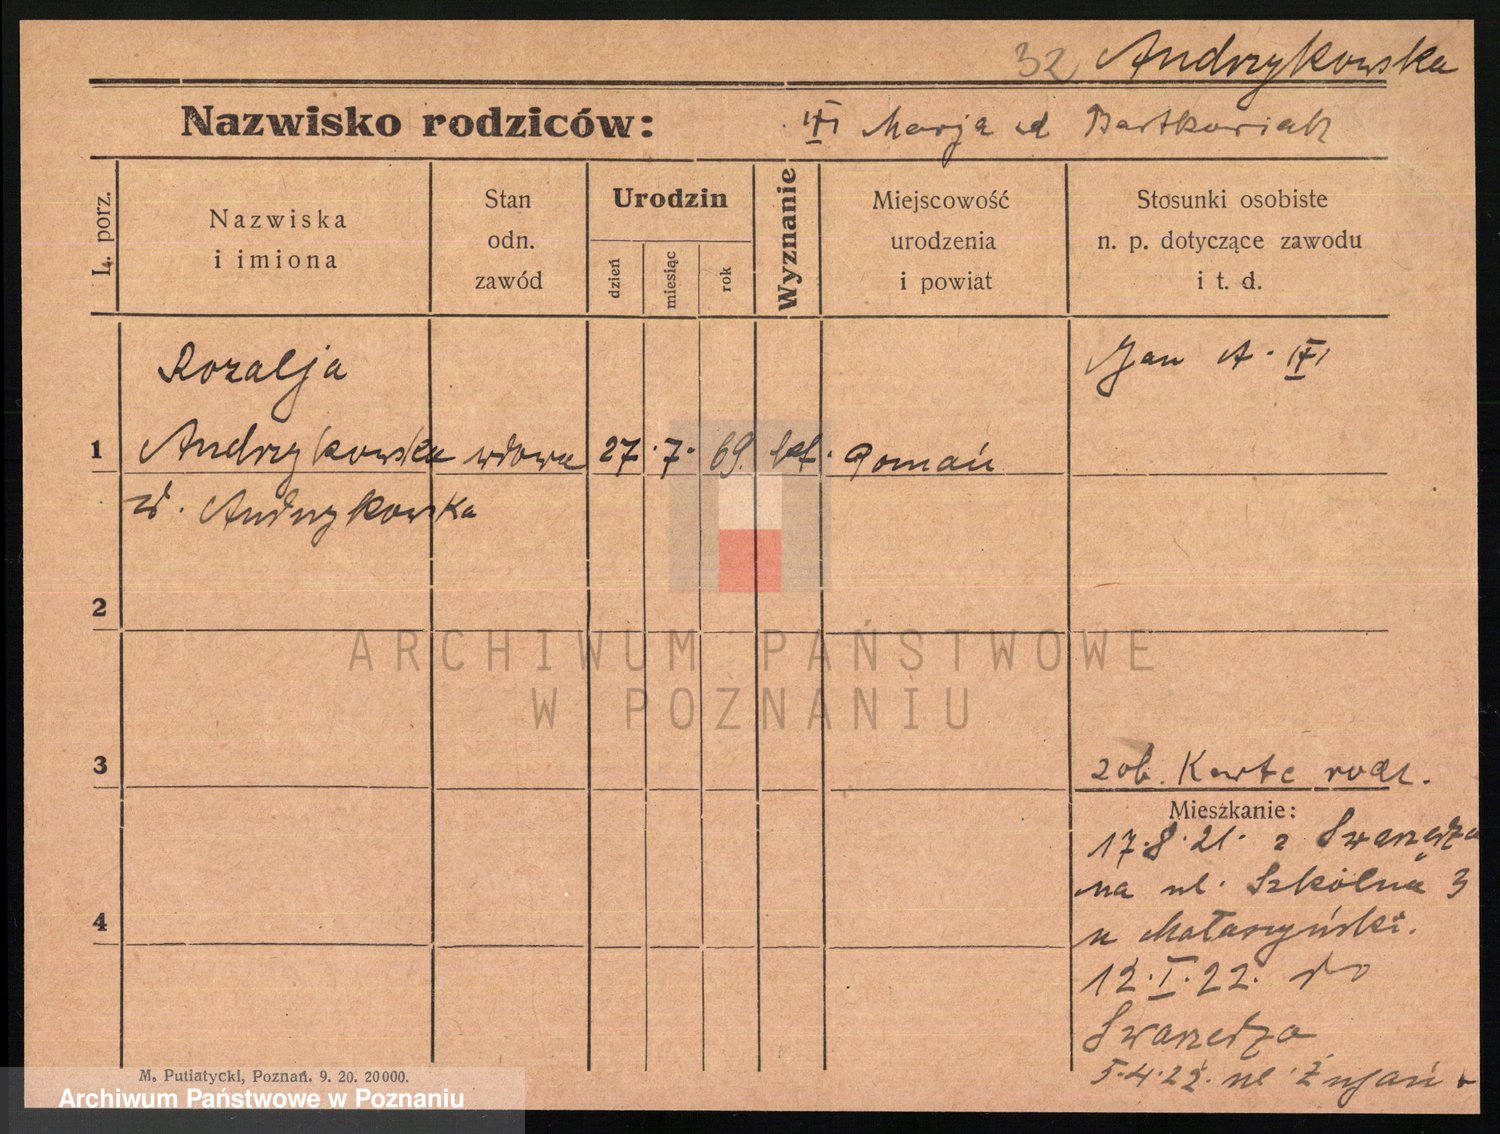 32 Andrzykowska
Nazwisko rodziców: Marja d Bartkowiak
L. porz.
Nazwiska
i imiona
Stan
odn.
zawód
Urodzin
dzień
miesiąc
rok
Wyznanie
Miejscowość
urodzenia
i powiat
Stosunki osobiste
n. p. dotyczące zawodu
i t. d.
Rozalja
Jan A.
1 Andrzykowska wdowa 27. 7. 69. kat. Poznań
zd. Andrzykowska
2
ARCHIWUM PAŃSTWOWE
W POZNANIU
3
zob. Karte rodz.
Mieszkanie:
17.8.21. z Swarzędza
na ul. Szkólna 3
u Małaszyński.
4
12.I.22. do
Swarzędza
5.4.22. ul
M. Putiatycki, Poznań. 9. 20. 20000.
Archiwum Państwowe w Poznaniu